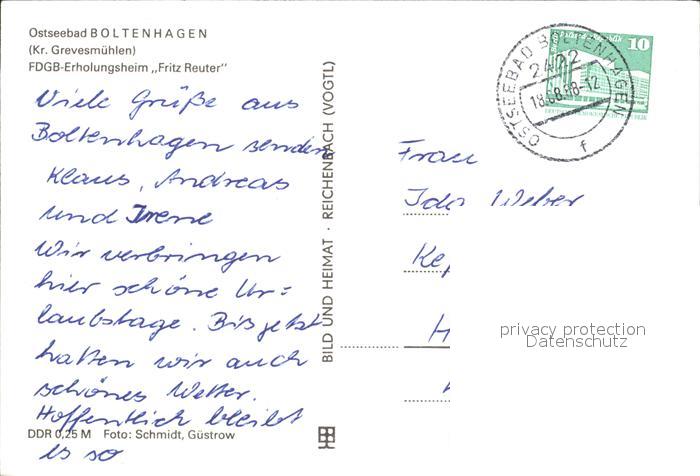 Ostseebad BOLTENHAGEN
(Kr. Grevesmühlen)
FDGB-Erholungsheim „Fritz Reuter"
Viele Grüße aus
Boltenhagen senden
Klaus, Andreas
und Irene
Wir verbringen
hier schöne Ur=
laubstage. Bis jetzt
hatten wir auch
schönes Wetter.
Hoffentlich bleibt
es so
DDR 0,25 M Foto: Schmidt, Güstrow
BILD UND HEIMAT · REICHENBACH (VOGTL)
OSTSEEBAD BOLTENHAGEN
2422
18.08.88-12
f
10
Frau
Ida Weber
Ke
H
privacy protection
Datenschutz